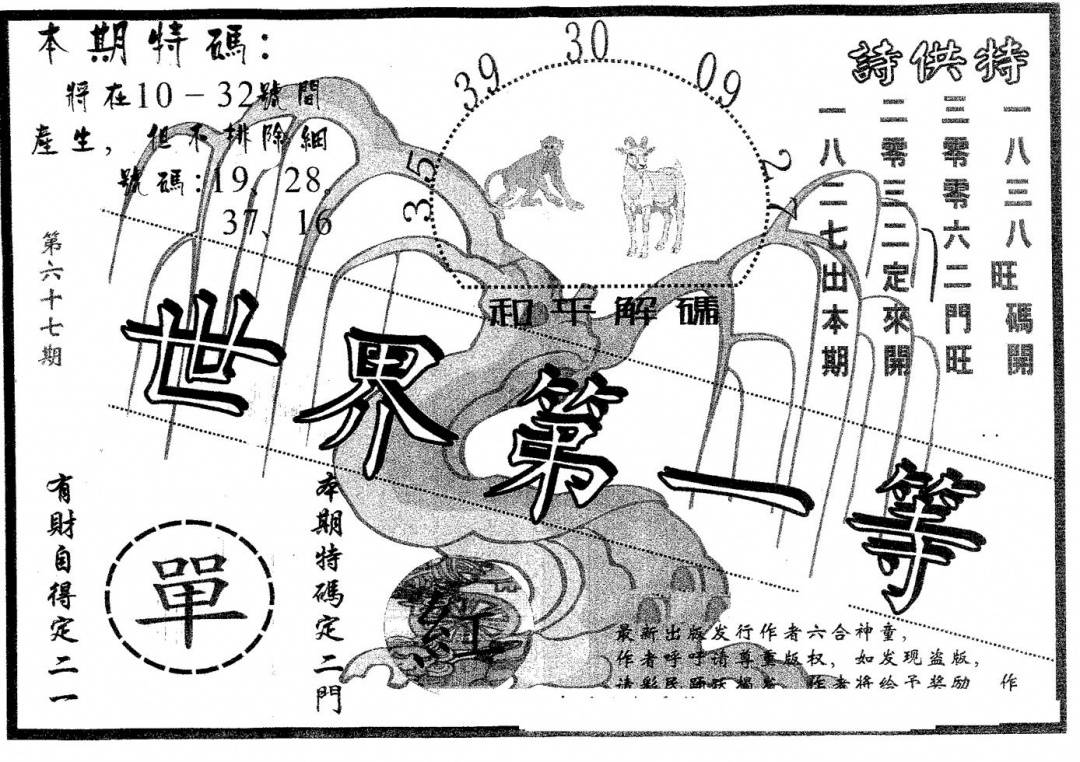 本期特碼：
將在10－32號間
產生，但不排除細
號碼：19、28。
37、16
第六十七期
35
39
30
09
27
和平解碼
特供詩
一八三八旺碼開
三零零六二門旺
二零三二定來開
一八二七出本期
世界第一等
有財自得定二一
單
本期特碼定二門
紅
最新出版发行作者六合神童，
作者呼吁请尊重版权，如发现盗版，
请彩民踊跃揭发，作者将给予奖励 作